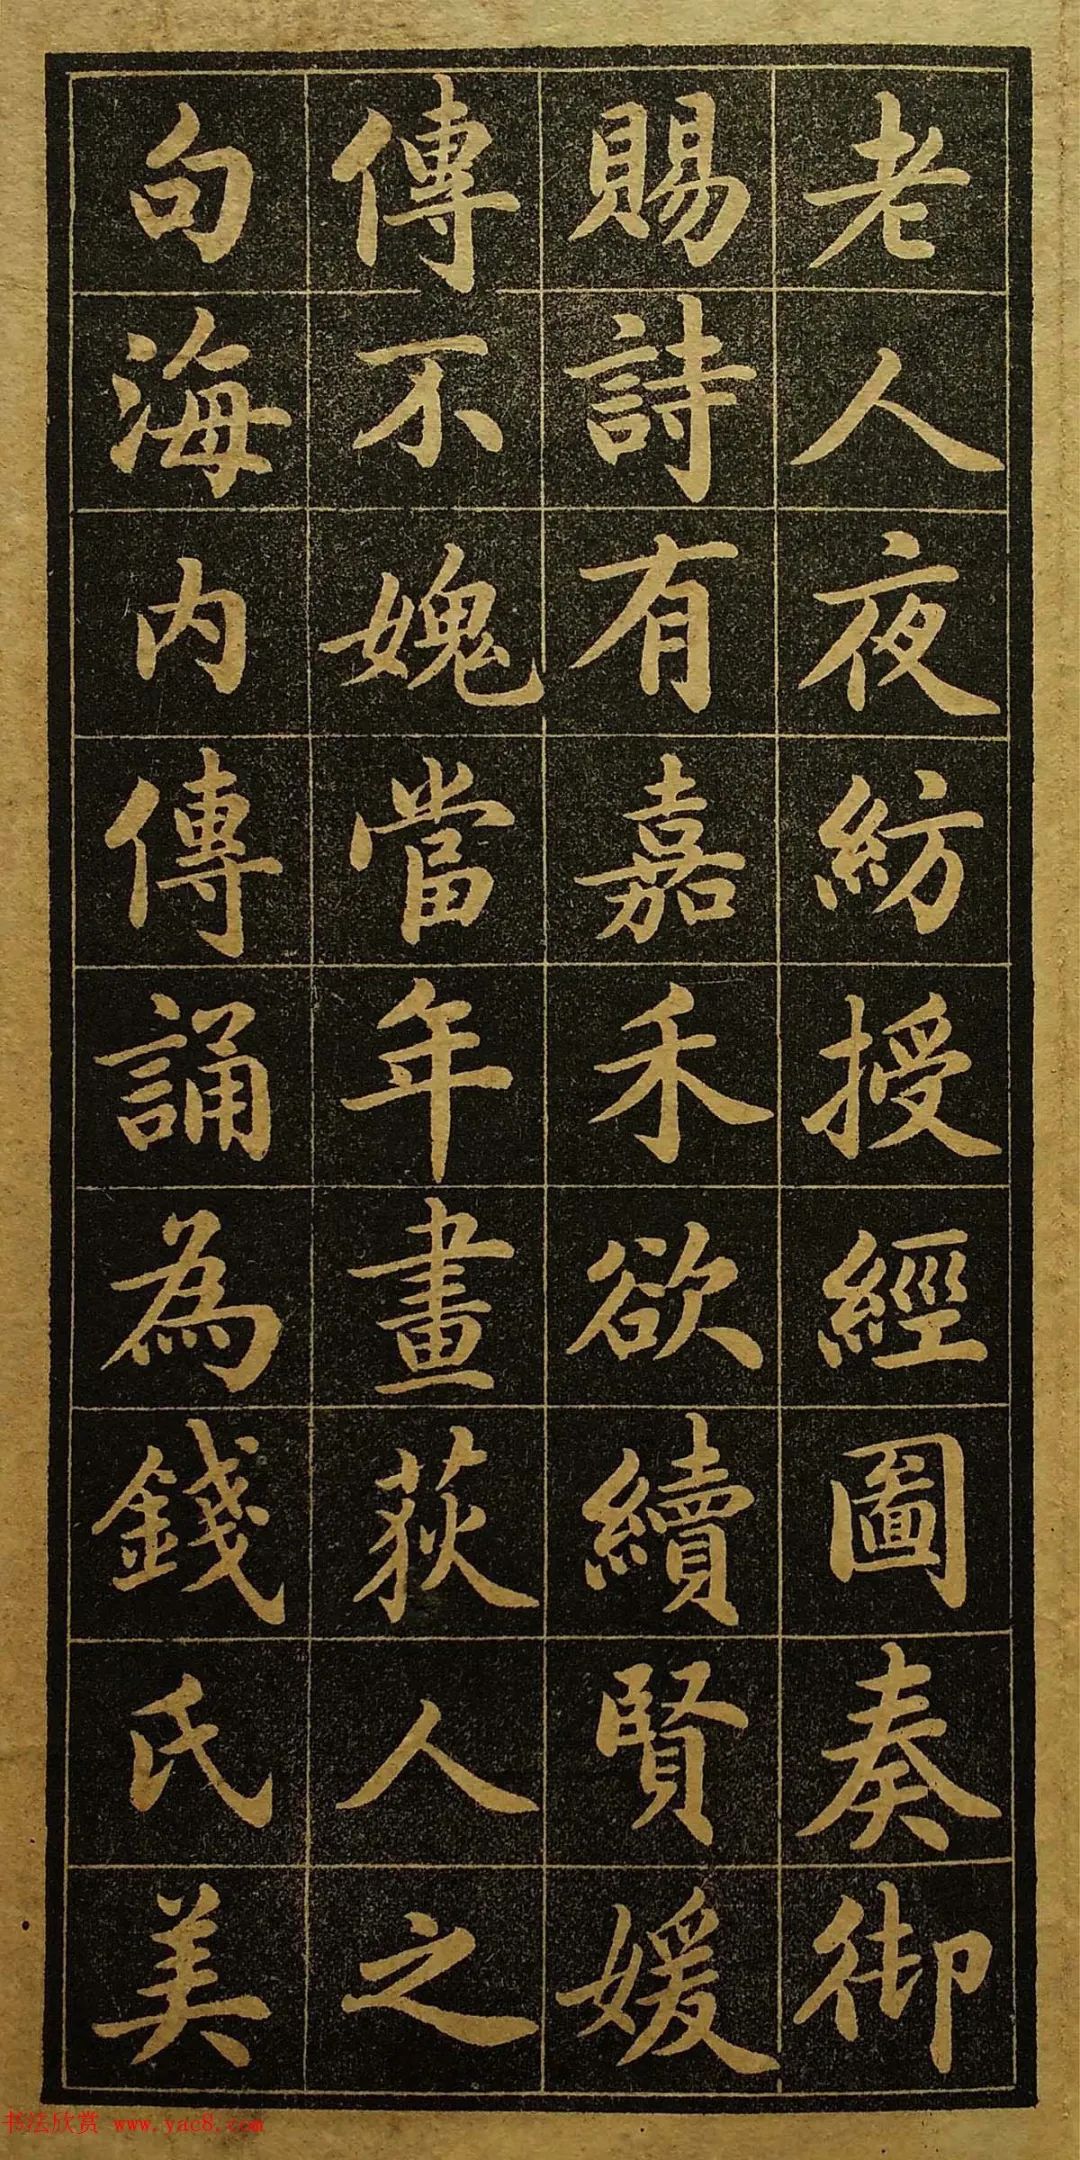 老人夜紡授經圖奏御
賜詩有嘉禾欲續賢媛
傳不媿當年畫荻人之
句海內傳誦為錢氏美
书法欣赏 www.yac8.com